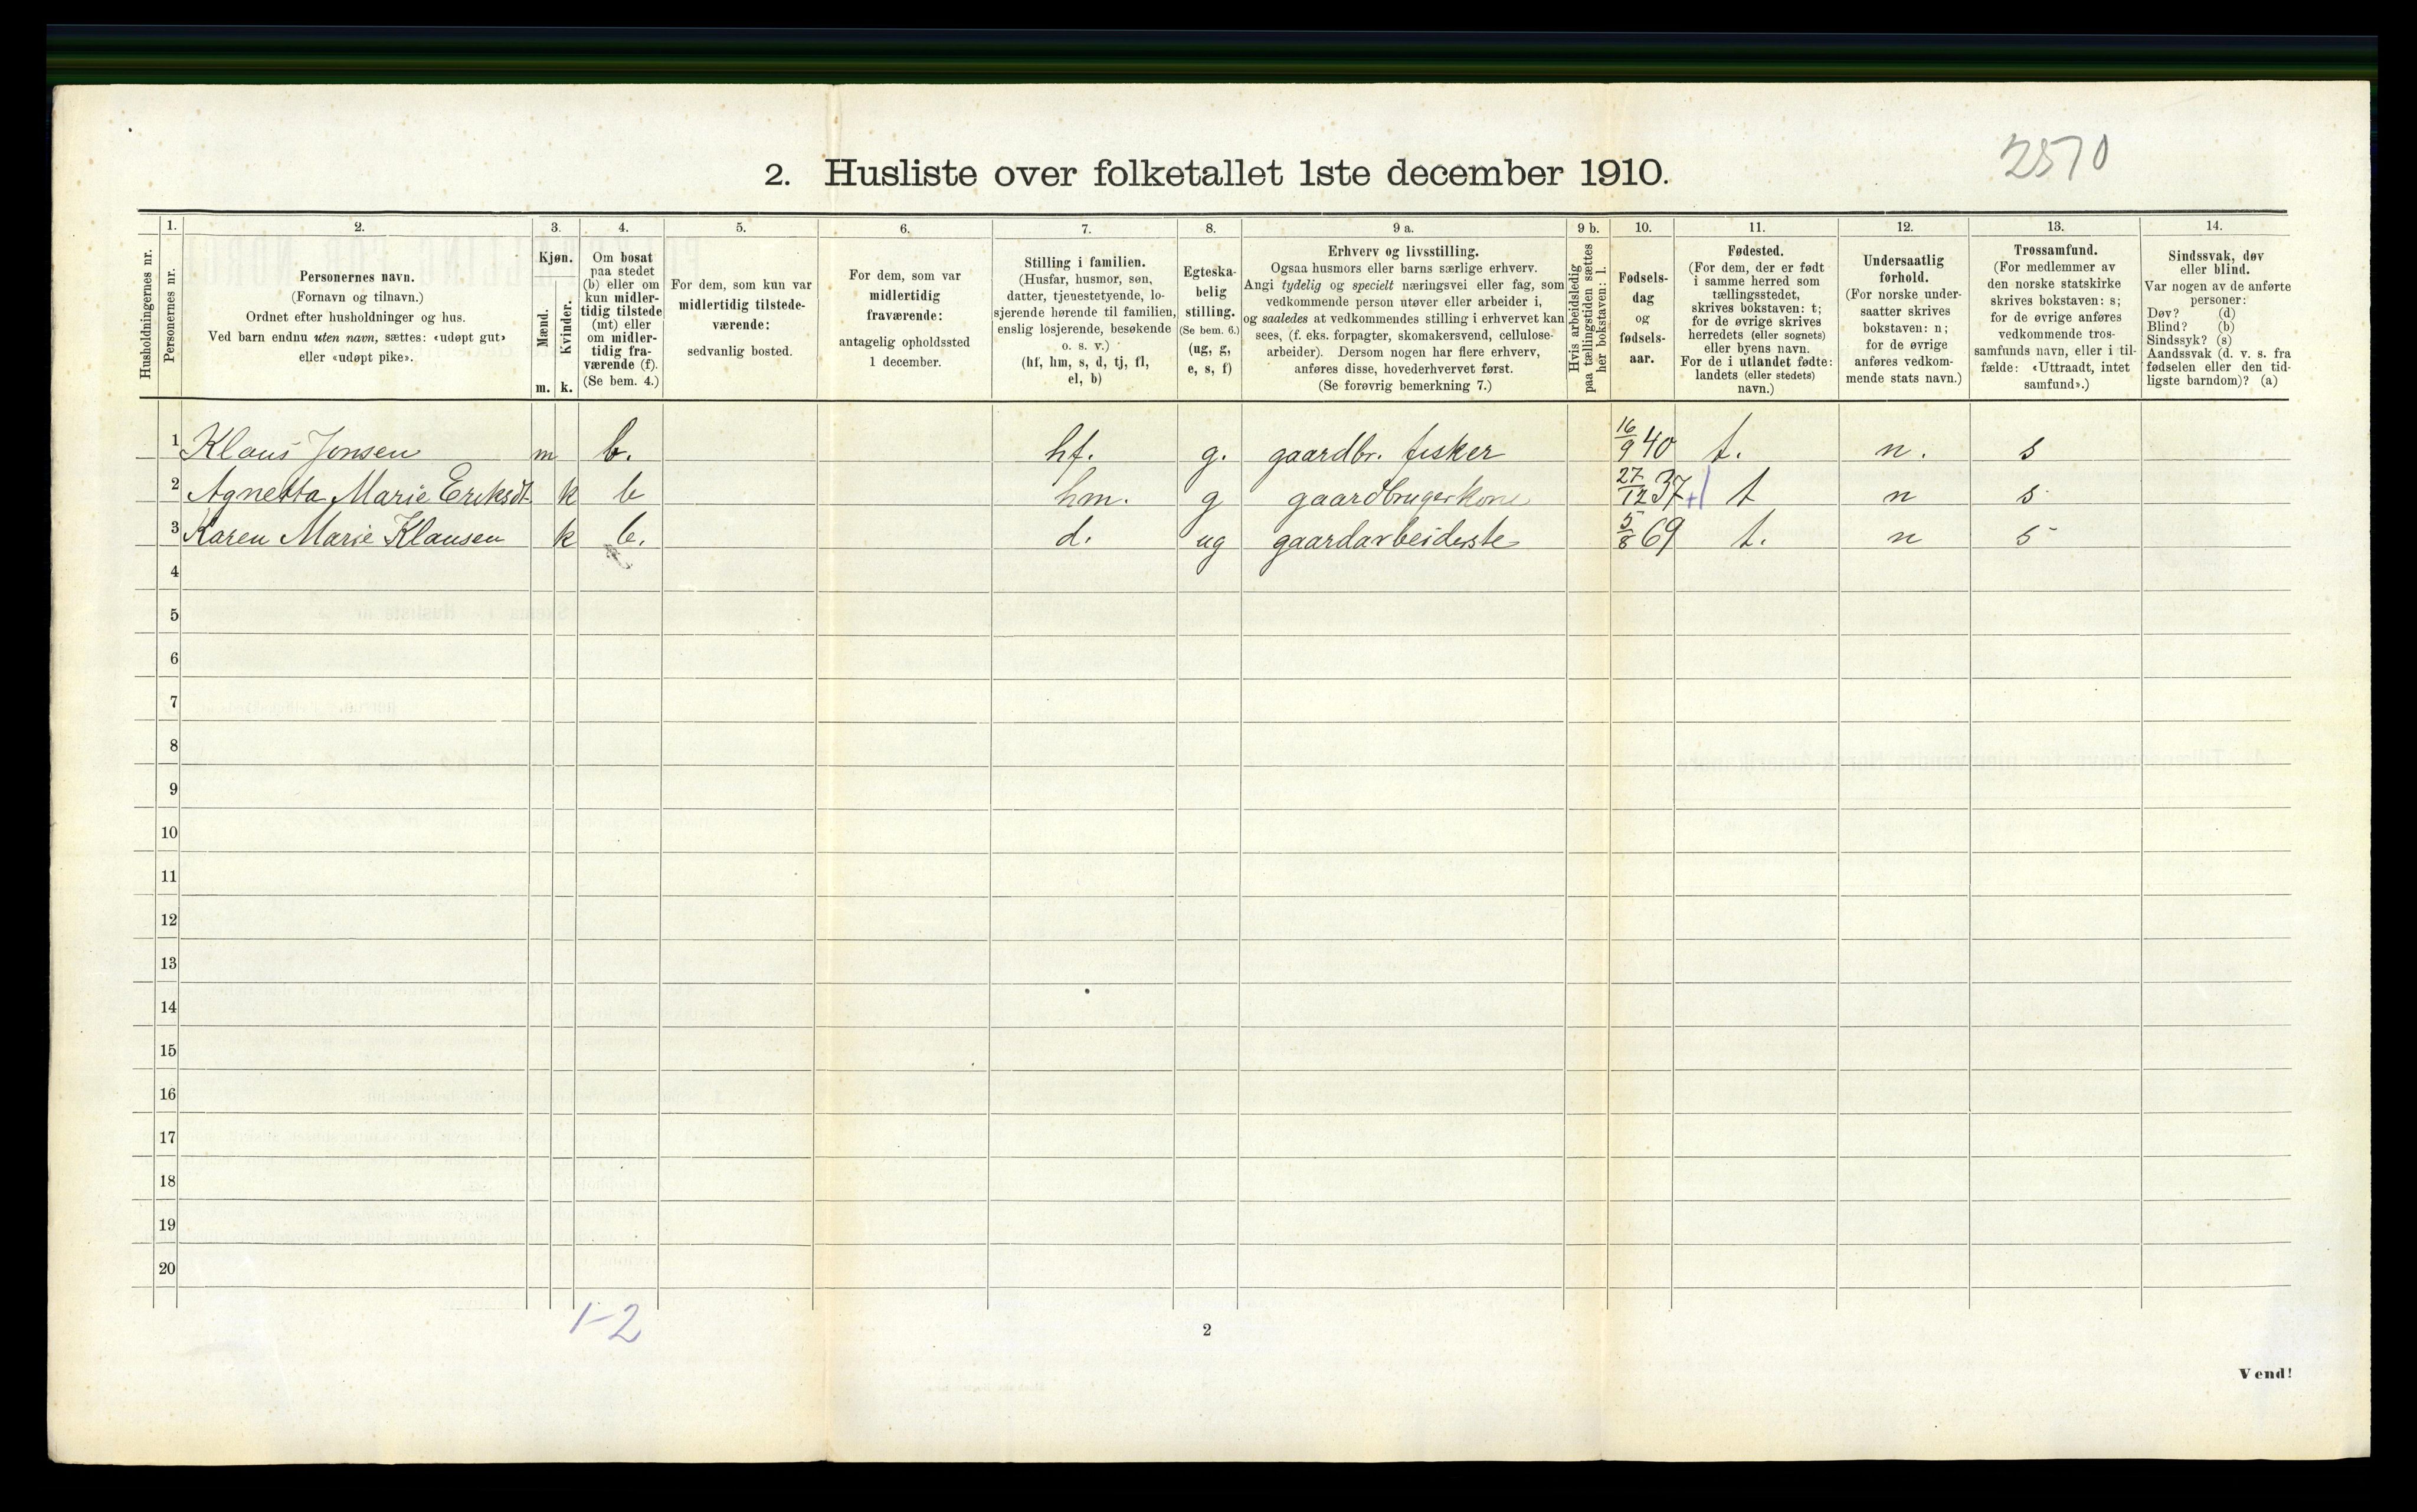 2570
2. Husliste over folketallet 1ste december 1910.
Husholdningernes nr.
1.
Personernes nr.
2.
Personernes navn.
(Fornavn og tilnavn.)
Ordnet efter husholdninger og hus.
Ved barn endnu uten navn, sættes: «udøpt gut»
eller «udøpt pike».
3.
Kjøn.
Mænd.
Kvinder.
m. k.
4.
Om bosat
paa stedet
(b) eller om
kun midler-
tidig tilstede
(mt) eller
om midler-
tidig fra-
værende (f).
(Se bem. 4.)
5.
For dem, som kun var
midlertidig tilstede-
værende:
sedvanlig bosted.
6.
For dem, som var
midlertidig
fraværende:
antagelig opholdssted
1 december.
7.
Stilling i familien.
(Husfar, husmor, søn,
datter, tjenestetyende, lo-
sjerende hørende til familien,
enslig losjerende, besøkende
o. s. v.)
(hf, hm, s, d, tj, fl,
el, b)
8.
Egteska-
belig
stilling.
(Se bem. 6.)
(ug, g,
e, s, f)
9 a.
Erhverv og livsstilling.
Ogsaa husmors eller barns særlige erhverv.
Angi tydelig og specielt næringsvei eller fag, som
vedkommende person utøver eller arbeider i,
og saaledes at vedkommendes stilling i erhvervet kan
sees, (f. eks. forpagter, skomakersvend, cellulose-
arbeider). Dersom nogen har flere erhverv,
anføres disse, hovederhvervet først.
(Se forøvrig bemerkning 7.)
9 b.
Hvis arbeidsledig
paa tællingstiden sættes
her bokstaven: l.
10.
Fødsels-
dag
og
fødsels-
aar.
11.
Fødested.
(For dem, der er født
i samme herred som
tællingsstedet,
skrives bokstaven: t;
for de øvrige skrives
herredets (eller sognets)
eller byens navn.
For de i utlandet fødte:
landets (eller stedets)
navn.)
12.
Undersaatlig
forhold.
(For norske under-
saatter skrives
bokstaven: n;
for de øvrige
anføres vedkom-
mende stats navn.)
13.
Trossamfund.
(For medlemmer av
den norske statskirke
skrives bokstaven: s;
for de øvrige anføres
vedkommende tros-
samfunds navn, eller i til-
fælde: «Uttraadt, intet
samfund».)
14.
Sindssvak, døv
eller blind.
Var nogen av de anførte
personer:
Døv? (d)
Blind? (b)
Sindssyk? (s)
Aandssvak (d. v. s. fra
fødselen eller den tid-
ligste barndom)? (a)
1 Klaus Jonsen m b. hf. g. gaardbr. fisker 16/9 40 t. n. s
2 Agnetta Marie Eriksdt. k b hm. g gaardbrugerkone 27/12 37 +1 t n s
3 Karen Marie Klausen k b. d. ug gaardarbeiderske 5/8 69 t. n s
4
5
6
7
8
9
10
11
12
13
14
15
16
17
18
19
20
1-2
2
Vend!